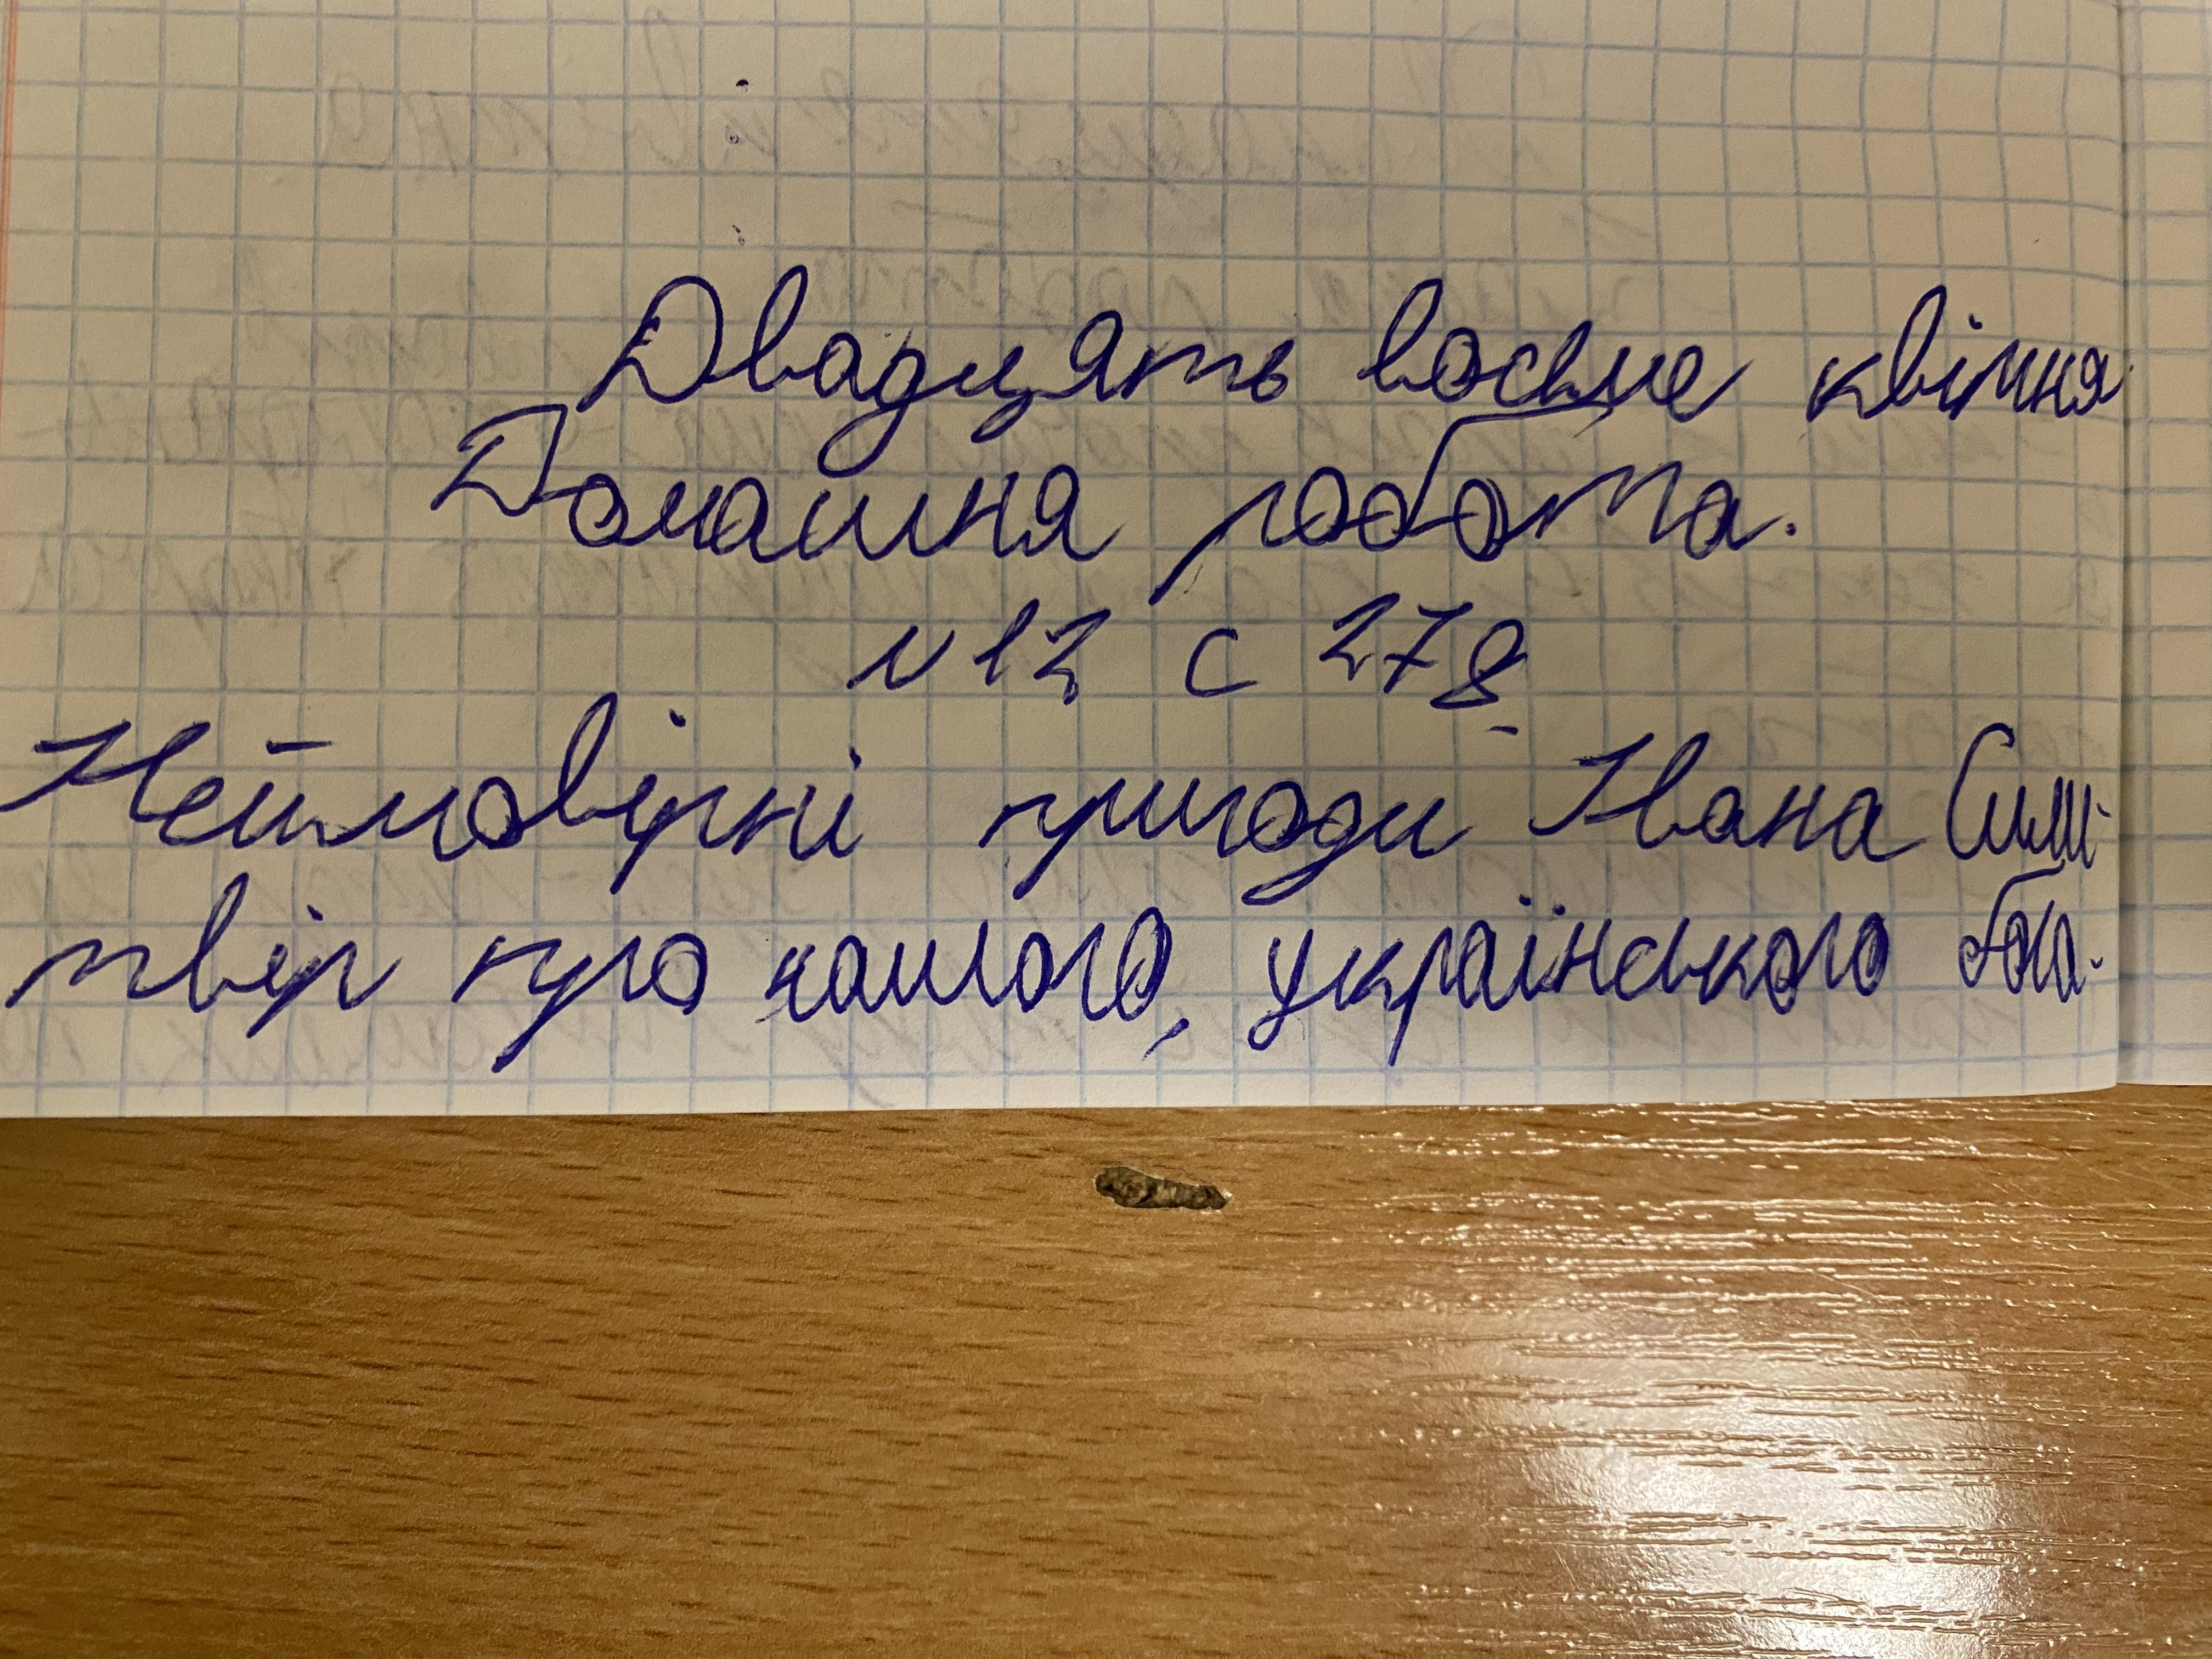 Двадцять восьме квітня
Домашня робота.
№12 с 278
Неймовірні пригоди Івана Сили-
твір про нашого, українського бога-